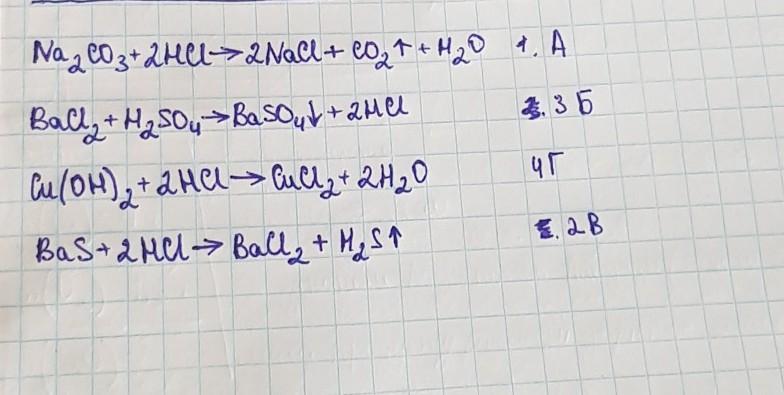 Na₂CO₃+2HCl→2NaCl+CO₂↑+H₂O 1. А
BaCl₂+H₂SO₄→BaSO₄↓+2HCl 3 Б
Cu(OH)₂+2HCl→CuCl₂+2H₂O 4Г
BaS+2HCl→BaCl₂+H₂S↑ 2В